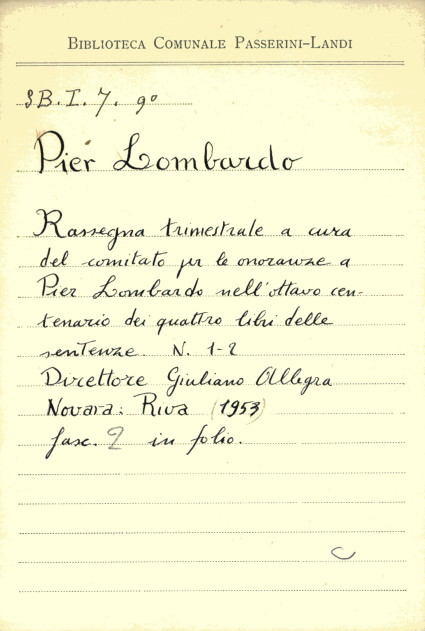 BIBLIOTECA COMUNALE PASSERINI-LANDI
3B.I.7.9°
Pier Lombardo
Rassegna trimestrale a cura
del comitato per le onoranze a
Pier Lombardo nell'ottavo cen-
tenario dei quattro libri delle
sentenze. N. 1-2
Direttore Giuliano Allegra
Novara: Riva (1953)
fasc. 2 in folio.